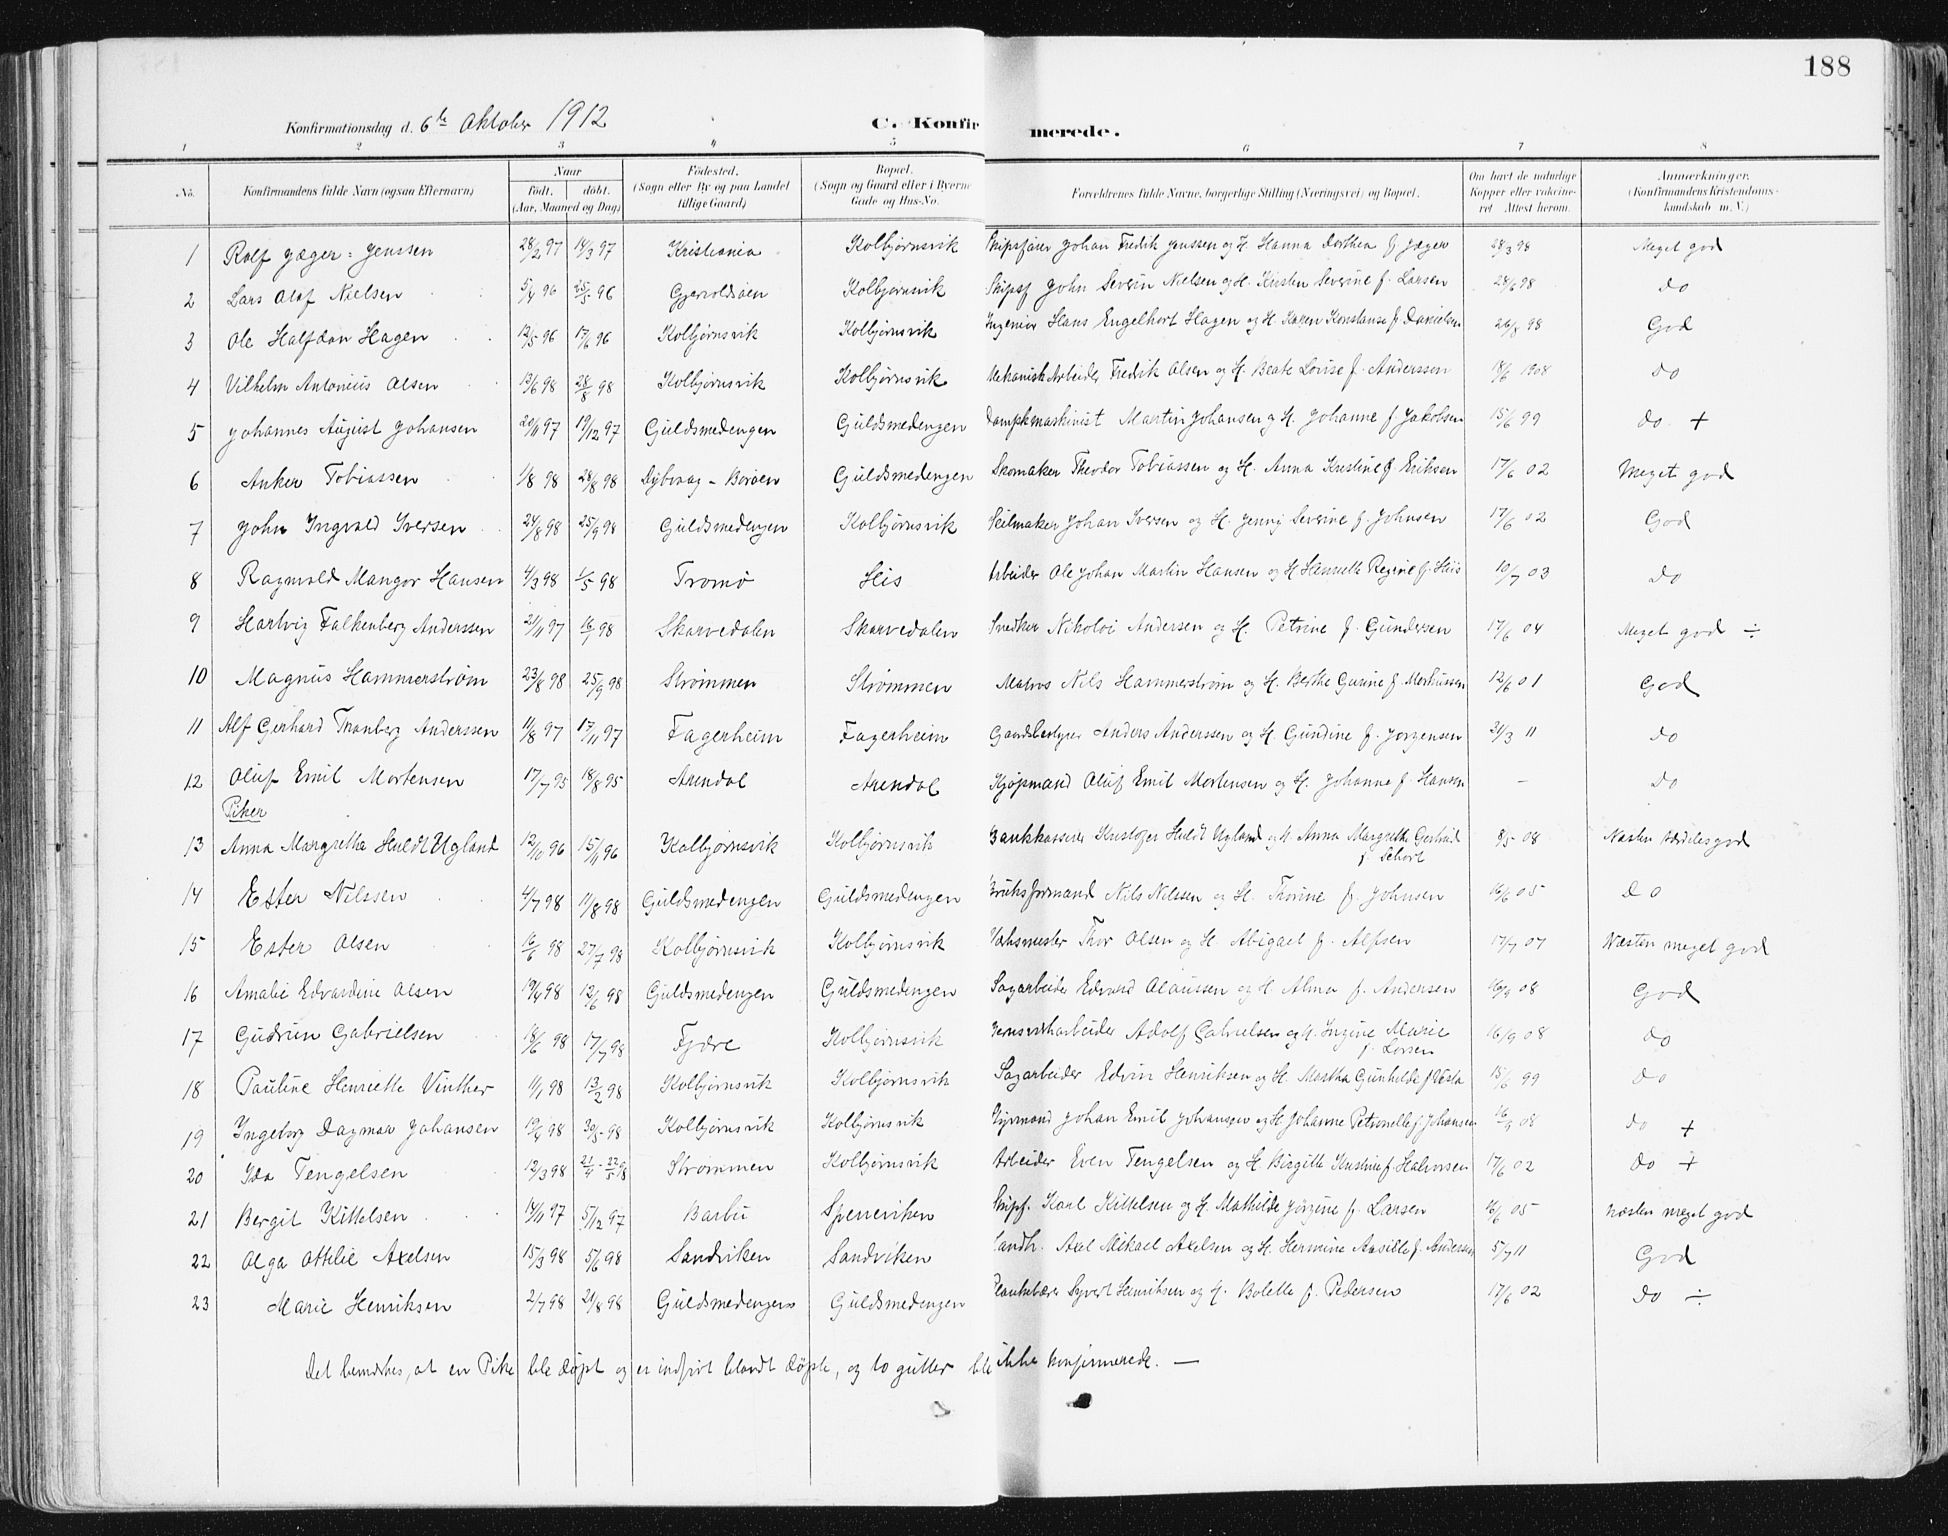 188
Konfirmationsdag d. 6te Oktober 1912 C. Konfirmerede.
1 2 3 4 5 6 7 8
No. Konfirmandens fulde Navn (ogsaa Efternavn) Naar født. døbt. (Aar, Maaned og Dag) Fødested. (Sogn eller By og paa Landet tillige Gaard) Bopæl. (Sogn og Gaard eller i Byerne Gade og Hus-No. Forældrenes fulde Navne, borgerlige Stilling (Næringsvei) og Bopæl. Om havt de naturlige Kopper eller vaccineret Attest herom. Anmærkninger. (Konfirmandens Kristendomskundskab m. V.)
1 Rolf Jæger-Jenssen 28/2 97 14/3 97 Kristiania Kolbjørnsvik Skipsfører Johan Fredik Jenssen og H. Hanna Dorthea f. Jæger 28/3 98 Meget god
2 Lars Olaf Nielsen 5/4 96 25/5 96 Gjervoldsøen Kolbjørnsvik Skipsf John Severin Nielsen og H. Kirsten Severine f. Larsen 24/6 98 do
3 Ole Halfdan Hagen 12/5 96 17/6 96 Kolbjørnsvik Kolbjørnsvik Ingeniør Hans Engelhart Hagen og H. Karen Konstanse f. Danielsen 26/8 98 God
4 Vilhelm Antonius Olsen 13/6 98 28/8 98 Kolbjørnsvik Kolbjørnsvik Mekanisk Arbeider Fredik Olsen og H. Beate Lovise f. Anderssen 18/6 1904 do
5 Johannes August Johansen 20/11 97 19/12 97 Guldsmedengen Guldsmedengen Dampskmaskinist Martin Johansen og H. Johanne f. Jakobsen 15/6 99 do +
6 Anker Tobiassen 1/8 98 28/8 98 Dybvaag - Borøen Guldsmedengen Skomaker Theodor Tobiassen og H. Anna Kristine f. Eriksen 17/6 02 Meget god
7 John Ingvald Iversen 24/8 98 25/9 98 Guldsmedengen Kolbjørnsvik Seilmaker Johan Iversen og H. Jenny Severine f. Johnsen 17/6 02 God
8 Ragnvald Mangor Hansen 4/3 98 1/5 98 Tromø His Arbeider Ole Johan Martin Hansen og H Henriette Regine f. Hiis 10/7 03 do
9 Hartvig Falkenberg Anderssen 21/11 97 16/1 98 Skarvedalen Skarvedalen Snedker Nikolai Andersen og H. Petrine f. Gundersen 17/6 04 Meget god ÷
10 Magnus Hammerstrøm 23/8 98 25/9 98 Strømmen Strømmen Matros Nils Hammerstrøm og H. Berthe Gurine f. Markussen 12/6 01 God
11 Alf Gerhard Tranberg Anderssen 11/8 97 17/11 97 Fagerheim Fagerheim Gaardsbestyrer Anders Anderssen og H. Gundine f. Jorgensen 31/3 11 do
12 Oluf Emil Mortensen 17/7 95 18/8 95 Arendal Arendal Kjøpmand Oluf Emil Mortensen og H. Johanne f. Hansen - do
Piker
13 Anna Margretha Huldt Ugland 12/10 96 15/11 96 Kolbjørnsvik Kolbjørnsvik Bankkasserer Kristofer Huldt Ugland og H Anna Margrethe Gertrud f. 8/5 08 Næsten særdelesgod
14 Ester Nilssen 4/7 98 11/8 98 Guldsmedengen Guldsmedengen Bruksformand Nils Nilssen og H. Thorine f. Johnsen 16/6 05 do
15 Ester Olsen 16/6 98 27/7 98 Kolbjørnsvik Kolbjørnsvik Thor Olsen og H. Abigael f. Alfsen 17/7 07 Næsten meget god
16 Amalie Edvardine Olsen 19/4 98 12/6 98 Guldsmedengen Guldsmedengen Sagarbeider Edvard Olaussen og H Alma f. Andersen 16/9 08 God
17 Gudrun Gabrielsen 18/6 98 17/7 98 Fjære Kolbjørnsvik Adolf Gabrielsen og H. Ingine Marie f. Larsen 16/9 08 do
18 Pauline Henriette Vinther 11/1 98 13/2 98 Kolbjørnsvik Kolbjørnsvik Sagarbeider Edvin Henriksen og H. Martha Gunhilde f. Vesta 15/6 99 do
19 Ingeborg Dagmar Johansen 19/4 98 30/5 98 Kolbjørnsvik Kolbjørnsvik Styrmand Johan Emil Johansen og H. Johanne Petronelle f. Johansen 16/9 08 do +
20 Ida Tengelsen 12/3 98 21/4 - 22/5 98 Strømmen Kolbjørnsvik Arbeider Even Tengelsen og H Birgitte Kristine f. Halvorsen 17/6 02 do +
21 Bergit Kittelsen 14/11 97 5/12 97 Barbu Sperreviken Skipf. Karl Kittelsen og H. Mathilde Jørgine f. Larsen 16/6 05 næsten meget god
22 Olga Ottilie Axelsen 15/3 98 5/6 98 Sandviken Sandviken Landh. Axel Mikael Axelsen og H. Hermine Aasille f. Andersen 5/7 11 God
23 Marie Henriksen 2/7 98 21/8 98 Guldsmedengen Guldsmedengen Plankebærer Syvert Henriksen og H. Bolette f. Pedersen 17/6 02 do ÷
Det bemerkes, at en Pike ble døpt og er indført blandt døpte, og to gutter ble ikke konfirmerede. —